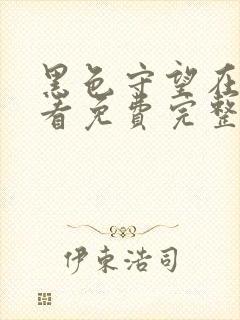 黑色守望在
看免费完整
伊东浩司